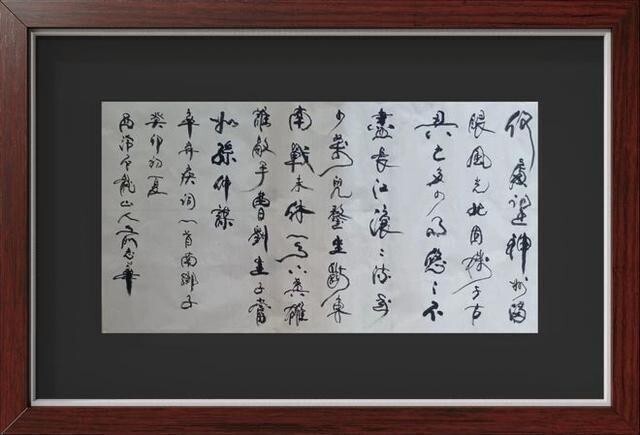 何處望神州滿
眼風光北固樓千古
興亡多少事悠〻不
盡長江滾〻流年
少萬兜鍪坐斷東
南戰未休天下英雄
誰敵手曹劉生子當
如孫仲謀
辛弃疾词一首南鄉子
癸卯初夏
龍山人